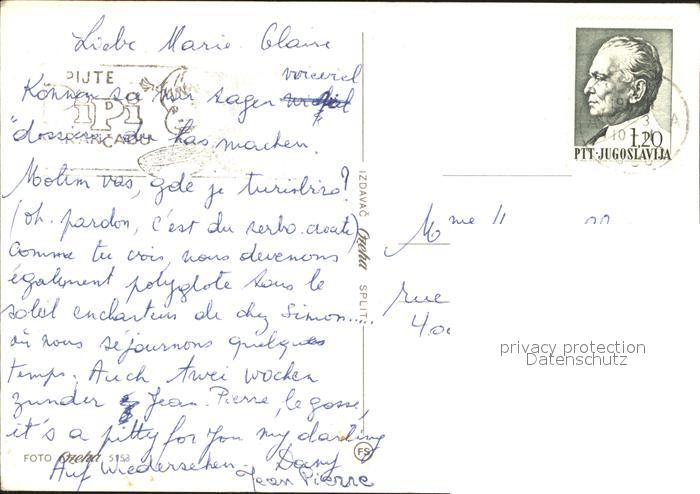 Liebe Marie Claire
PIJTE
vorceviel
Können sa mir sagen
PiPi
"dossiers du has machen.
NARANČADU
Molim vas, gde je turistbiro?
(oh. pardon, c'est du serbo.croate)
Comme tu vois, nous devenons
également polyglote sous le
soleil enchanteur de chez Simon....
où nous séjournons quelques
temps. Auch twei wochen
zunder Jean.Pierre, le gosse,
it's a pitty for you my darling
Auf Wiedersehen. Dany
Jean Pierre
FOTO Ozeha 5153
FS
IZDAVAČ Ozeha SPLIT
1.20
PTT·JUGOSLAVIJA
Mme
rue
privacy protection
Datenschutz